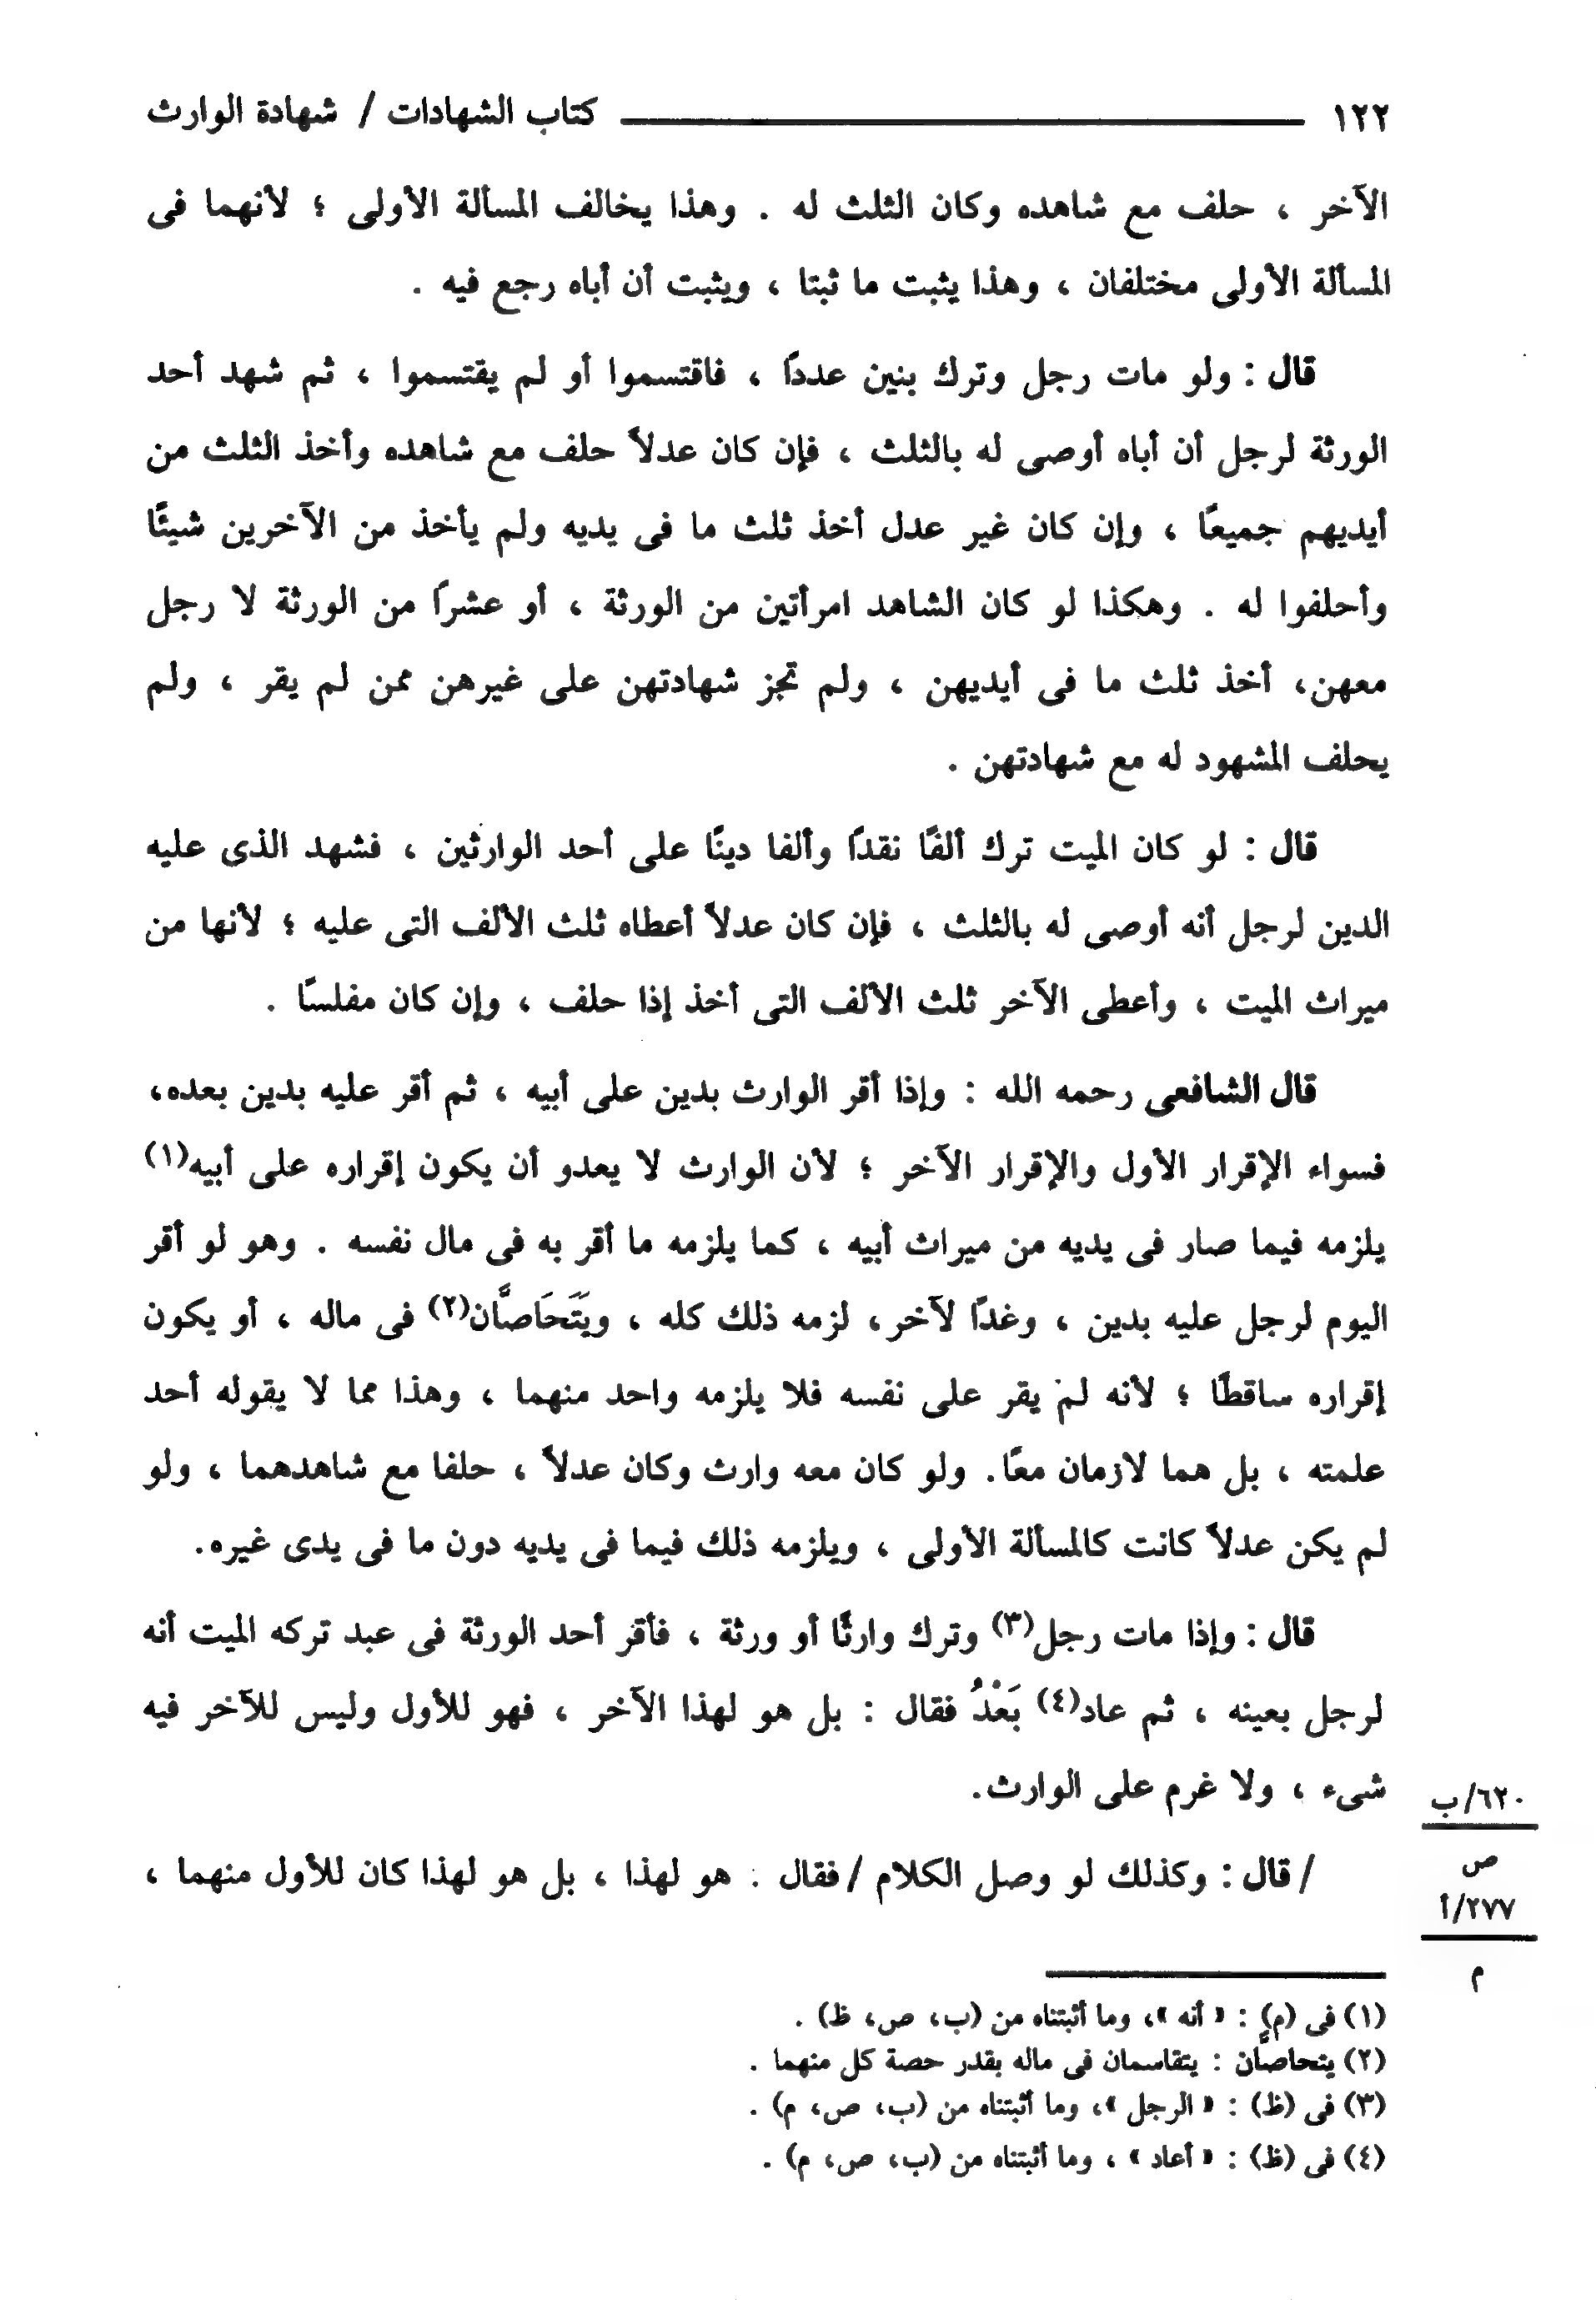 ١٢٢ كتاب الشهادات / شهادة الوارث
الآخر ، حلف مع شاهده وكان الثلث له . وهذا يخالف المسألة الأولى ؛ لأنهما فى
المسألة الأولى مختلفان ، وهذا يثبت ما ثبتا ، ويثبت أن أباه رجع فيه .
قال : ولو مات رجل وترك بنين عددًا ، فاقتسموا أو لم يقتسموا ، ثم شهد أحد
الورثة لرجل أن أباه أوصى له بالثلث ، فإن كان عدلاً حلف مع شاهده وأخذ الثلث من
أيديهم جميعًا ، وإن كان غير عدل أخذ ثلث ما فى يديه ولم يأخذ من الآخرين شيئًا
وأحلفوا له . وهكذا لو كان الشاهد امرأتين من الورثة ، أو عشرًا من الورثة لا رجل
معهن، أخذ ثلث ما فى أيديهن ، ولم تجز شهادتهن على غيرهن ممن لم يقر ، ولم
يحلف المشهود له مع شهادتهن .
قال : لو كان الميت ترك ألفًا نقدًا وألفا دينًا على أحد الوارثين ، فشهد الذى عليه
الدين لرجل أنه أوصى له بالثلث ، فإن كان عدلاً أعطاه ثلث الألف التى عليه ؛ لأنها من
ميراث الميت ، وأعطى الآخر ثلث الألف التى أخذ إذا حلف ، وإن كان مفلسًا .
قال الشافعى رحمه الله : وإذا أقر الوارث بدين على أبيه ، ثم أقر عليه بدين بعده،
فسواء الإقرار الأول والإقرار الآخر ؛ لأن الوارث لا يعدو أن يكون إقراره على أبيه(١)
يلزمه فيما صار فى يديه من ميراث أبيه ، كما يلزمه ما أقر به فى مال نفسه . وهو لو أقر
اليوم لرجل عليه بدين ، وغدًا لآخر، لزمه ذلك كله ، ويَتَحَاصَّان(٢) فى ماله ، أو يكون
إقراره ساقطًا ؛ لأنه لم يقر على نفسه فلا يلزمه واحد منهما ، وهذا مما لا يقوله أحد
علمته ، بل هما لازمان معًا. ولو كان معه وارث وكان عدلاً ، حلفا مع شاهدهما ، ولو
لم يكن عدلاً كانت كالمسألة الأولى ، ويلزمه ذلك فيما فى يديه دون ما فى يدى غيره.
قال : وإذا مات رجل(٣) وترك وارثًا أو ورثة ، فأقر أحد الورثة فى عبد تركه الميت أنه
لرجل بعينه ، ثم عاد(٤) بَعْدُ فقال : بل هو لهذا الآخر ، فهو للأول وليس للآخر فيه
شىء ، ولا غرم على الوارث.
/ قال : وكذلك لو وصل الكلام / فقال : هو لهذا ، بل هو لهذا كان للأول منهما ،
٦٢٠/ب
ص
٢٧٧/أ
م
(١) فى (م) : « أنه »، وما أثبتناه من (ب، ص، ظ) .
(٢) يتحاصَّان : يتقاسمان فى ماله بقدر حصة كل منهما .
(٣) فى (ظ) : « الرجل »، وما أثبتناه من (ب، ص، م) .
(٤) فى (ظ) : « أعاد » ، وما أثبتناه من (ب، ص، م) .